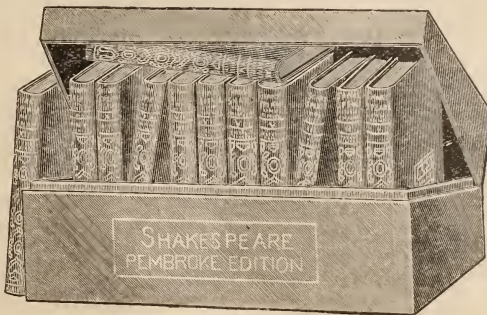 SHAKESPEARE
PEMBROKE EDITION